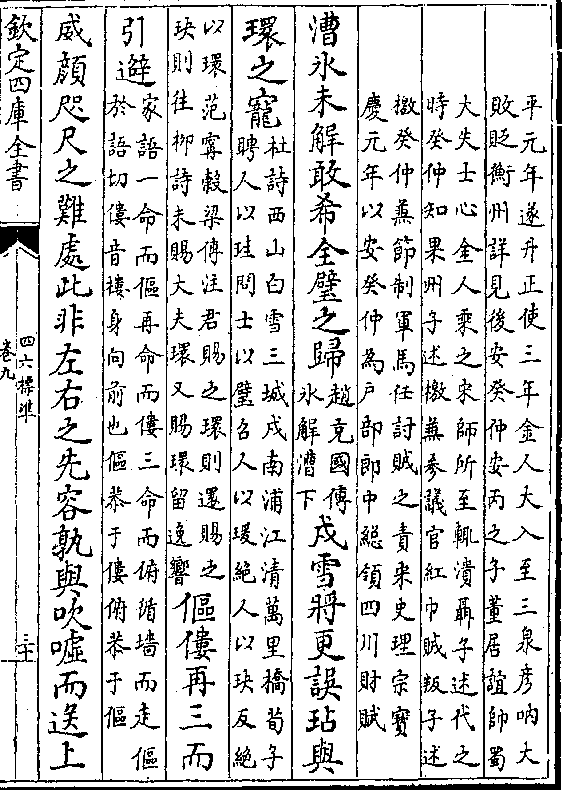 平元年遂升正使三年金人大入至三泉彥吶大
敗貶衡州詳見後安癸仲安丙之子董居誼帥蜀
大失士心金人乘之宋師所至輒潰聶子述代之
時癸仲知果州子述檄兼參議官紅巾賊叛子述
檄癸仲兼節制軍馬任討賊之責宋史理宗寶
慶元年以安癸仲為戶部郎中總領四川財賦
漕氷未解敢希全璧之歸趙充國傳
氷解漕下戍雪將更誤玷與
環之寵杜詩西山白雪三城戍南浦江清萬里橋荀子
聘人以珪問士以璧召人以瑗絕人以玦反絕
以環范甯穀梁傳注君賜之環則還賜之
玦則往柳詩未賜大夫環又賜環留逸響傴僂再三而
引避家語一命而傴再命而僂三命而俯循墻而走傴
於語切僂音褸身向前也傴恭于僂俯恭于傴
威顔咫尺之難處此非左右之先容孰與吹噓而送上
欽定四庫全書
四六標準
卷九
二十